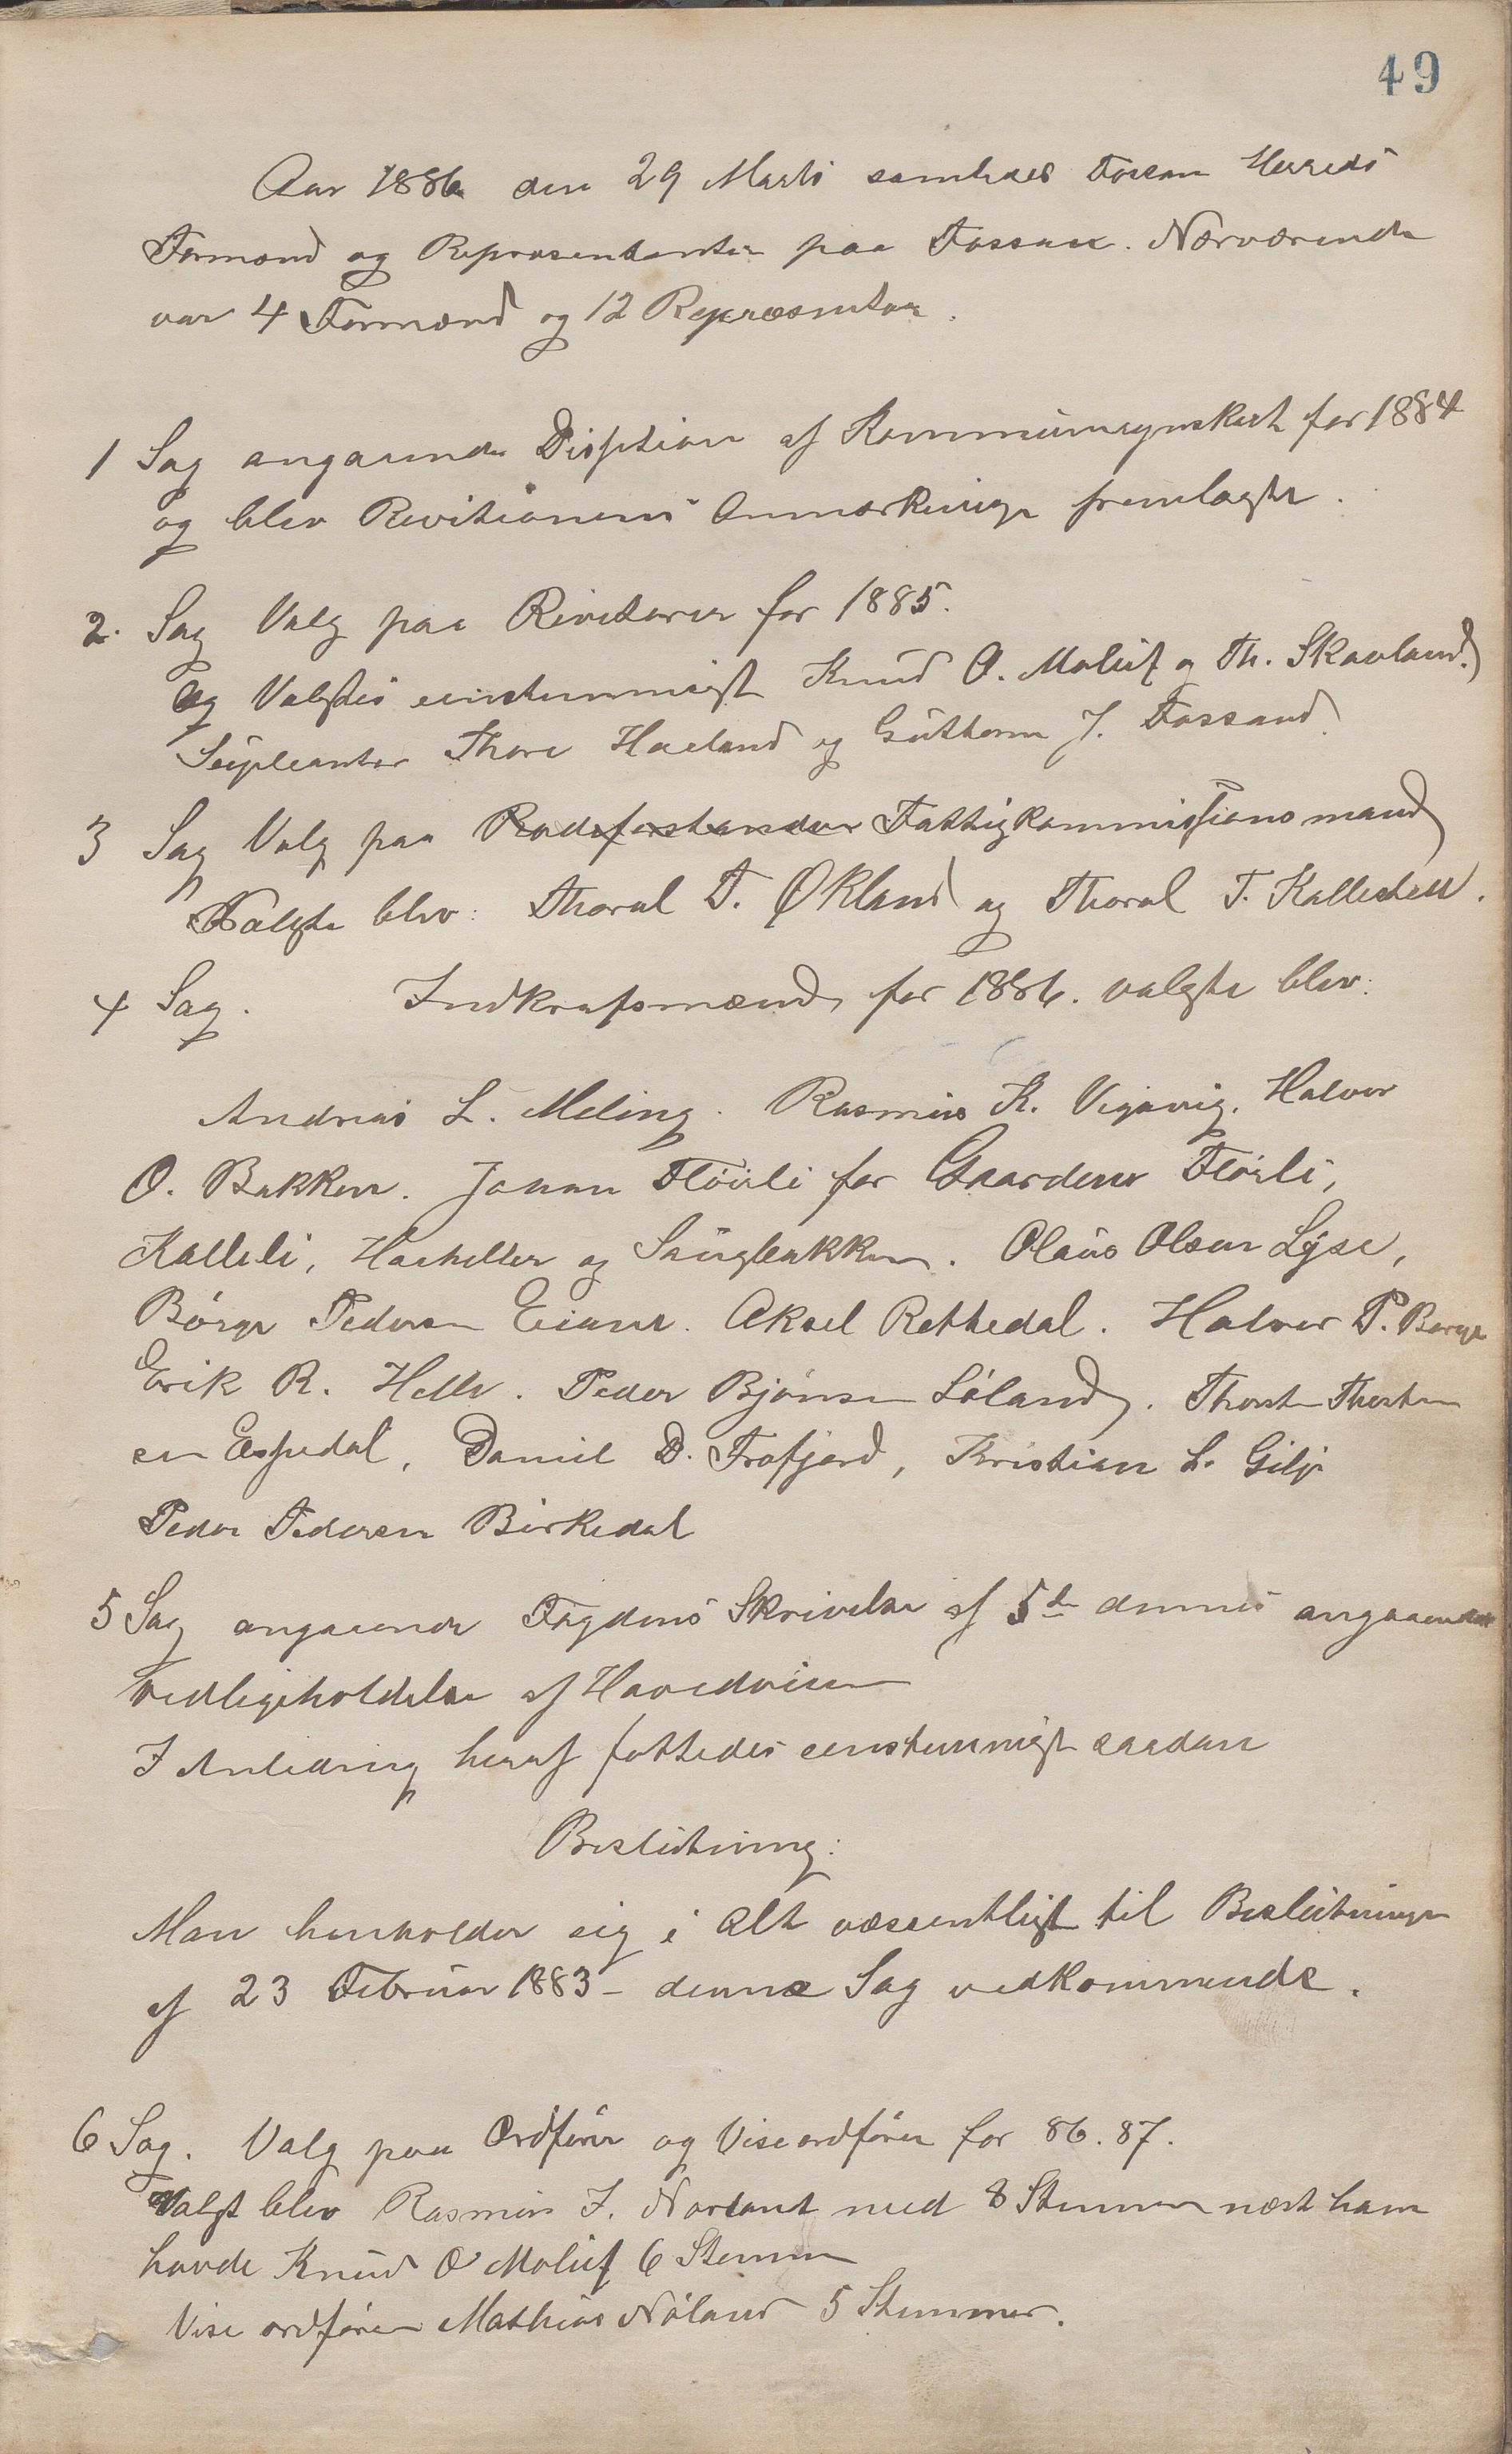 49
Aar 1886 den 29 Marts samledes Fossan Herreds
Formænd og Repræsentanter paa Fossan. Nærværende
var 4 Formænd og 12 Repræsentar.
1 Sag angaaende Disition af Kommuneregnskab for 1884
og blev Revitionens Anmærkninge fremlagte.
2. Sag Valg paa Rivitorer for 1885.
og Valgtes einstemmigt Knud O. Maluf og Th. Skavland.
Supleanter Thore Haeland og Guttorm J. Fossand.
3 Sag Valg paa Rodeforstander Fattigkommissions mand
Valgte blev: Thoral T. Økland og Thoral T. Kallestein.
4 Sag. Indkrafsmænd for 1886. valgte blev:
Andreas L. Meling. Rasmus K. Vigavig. Halvor
O. Bakken. Johan Flöirli for Gaardene Flörli,
Kalleli, Haaheller og Sangbakken. Olaus Olsen Lyse,
Börge Pedersen Eiane. Aksel Rettedal. Halvor P. Berge
Erik R. Helle. Peder Bjönsen Löland. Thorsten Thorsten
sen Espedal, Daniel D. Frafjord, Kristian L. Gilje
Peder Pedersen Birkedal
5 Sag angaaende Fogdens Skrivelse af 5te dennes angaaende
Vedligeholdelse af Hovedveien
I Anledning heraf fattedes eenstemmigt saadan
Beslutning:
Man henholder sig i Alt væsentligt til Beslutninge
af 23 Februar 1883 - denne Sag vedkommende.
6 Sag. Valg paa Ordförer og Viseordförer for 86. 87.
Valgt blev Rasmus I. Norland med 8 Stemmer næst ham
havde Knud O Maluf 6 Stemmer
Vise ordförer Mathias Nåland 5 Stemmer.